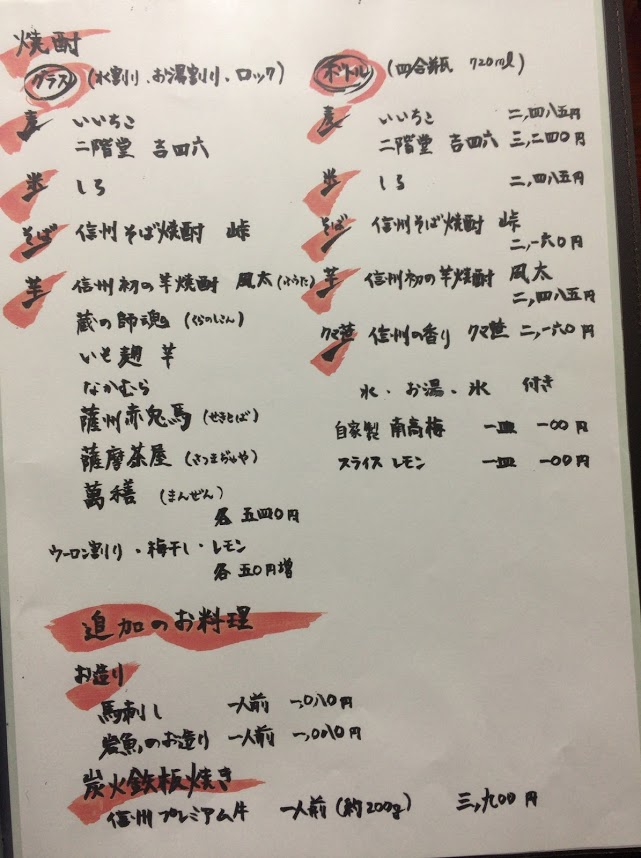 焼酎
グラス (水割り、お湯割り、ロック)
麦 いいちこ
二階堂 吉四六
米 しろ
そば 信州そば焼酎 峠
芋 信州初の芋焼酎 風太(ふうた)
蔵の師魂 (くらのしこん)
いも麹 芋
なかむら
薩州赤兎馬 (せきとば)
薩摩茶屋 (さつまぢゃや)
萬膳 (まんぜん)
各 五四〇円
ウーロン割り・梅干し・レモン
各 五〇円増
ボトル (四合瓶 720ml)
麦 いいちこ 二,四八五円
二階堂 吉四六 三,二四〇円
米 しろ 二,四八五円
そば 信州そば焼酎 峠
二,一六〇円
芋 信州初の芋焼酎 風太
二,四八五円
クマ笹 信州の香り クマ笹 二,一六〇円
水、お湯、氷 付き
自家製 南高梅 一皿 一〇〇円
スライスレモン 一皿 一〇〇円
追加のお料理
お造り
馬刺し 一人前 一,〇八〇円
岩魚のお造り 一人前 一,〇八〇円
炭火鉄板焼き
信州プレミアム牛 一人前(約200g) 三,九〇〇円